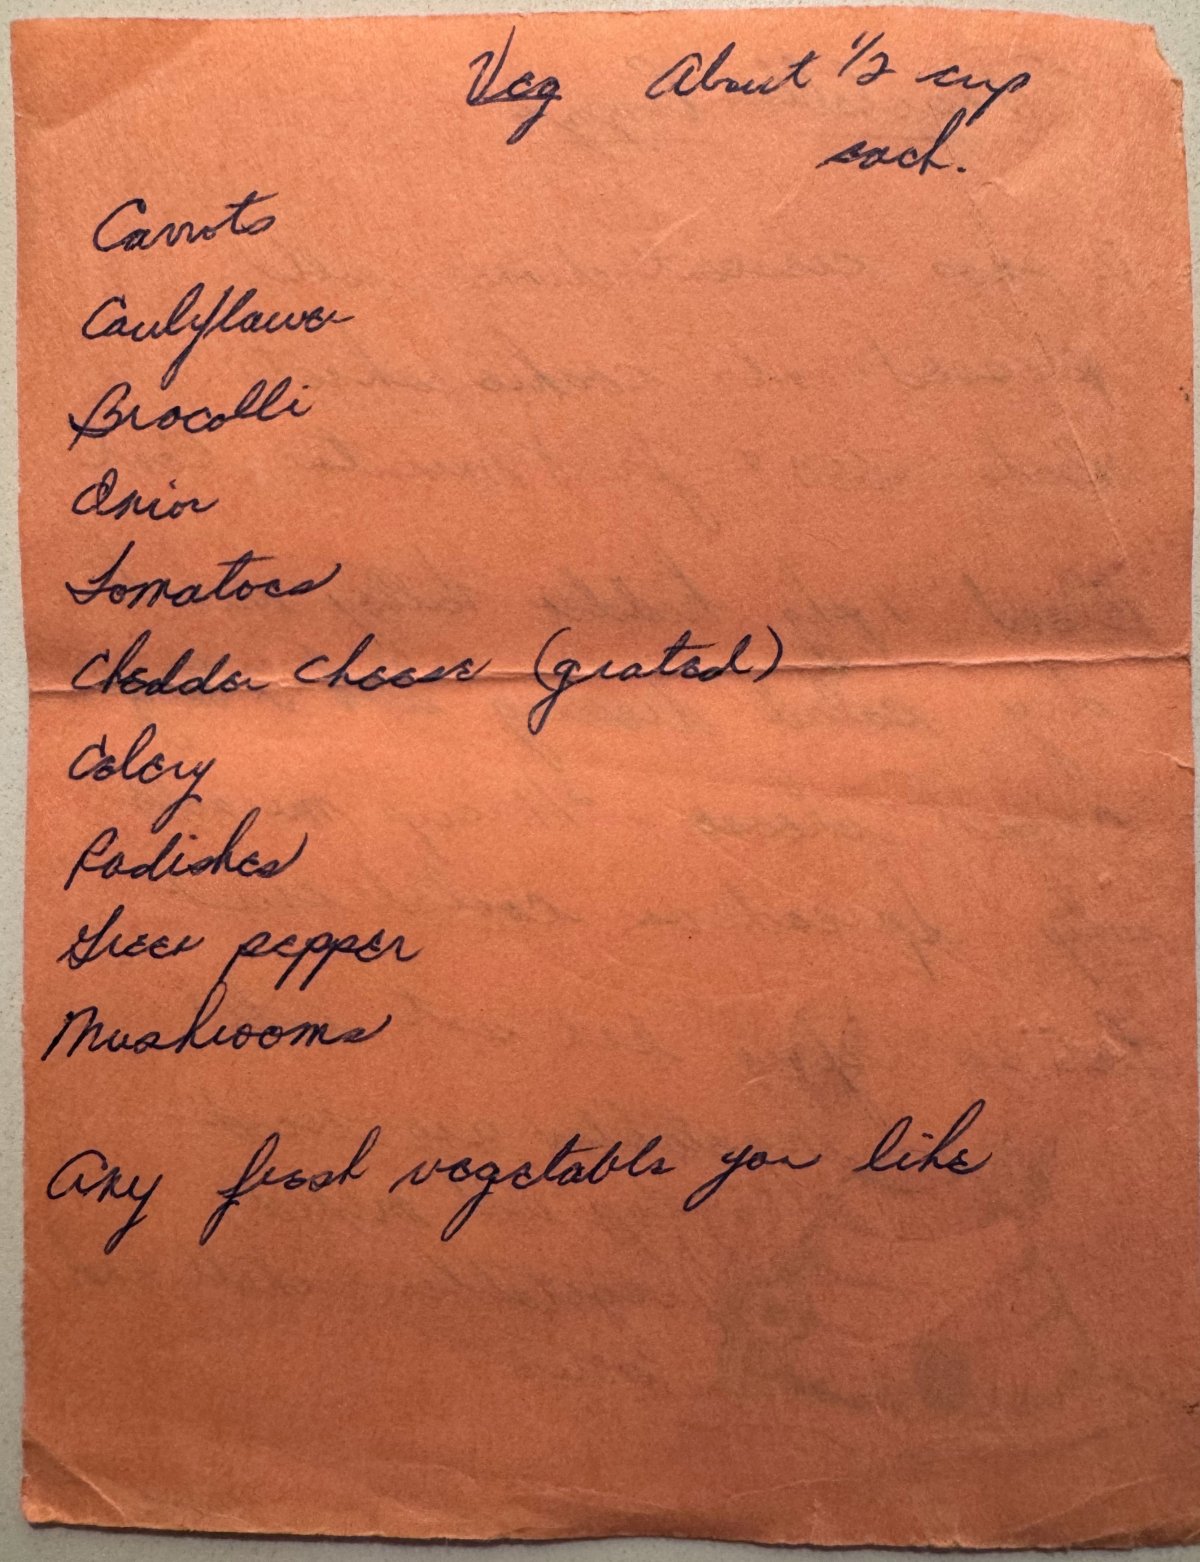 Veg About 1/2 cup
each.
Carrots
Cauliflower
Brocolli
Onion
Tomatoes
Chedder cheese (grated)
Celery
Radishes
Green pepper
Mushrooms
Any fresh vegetable you like